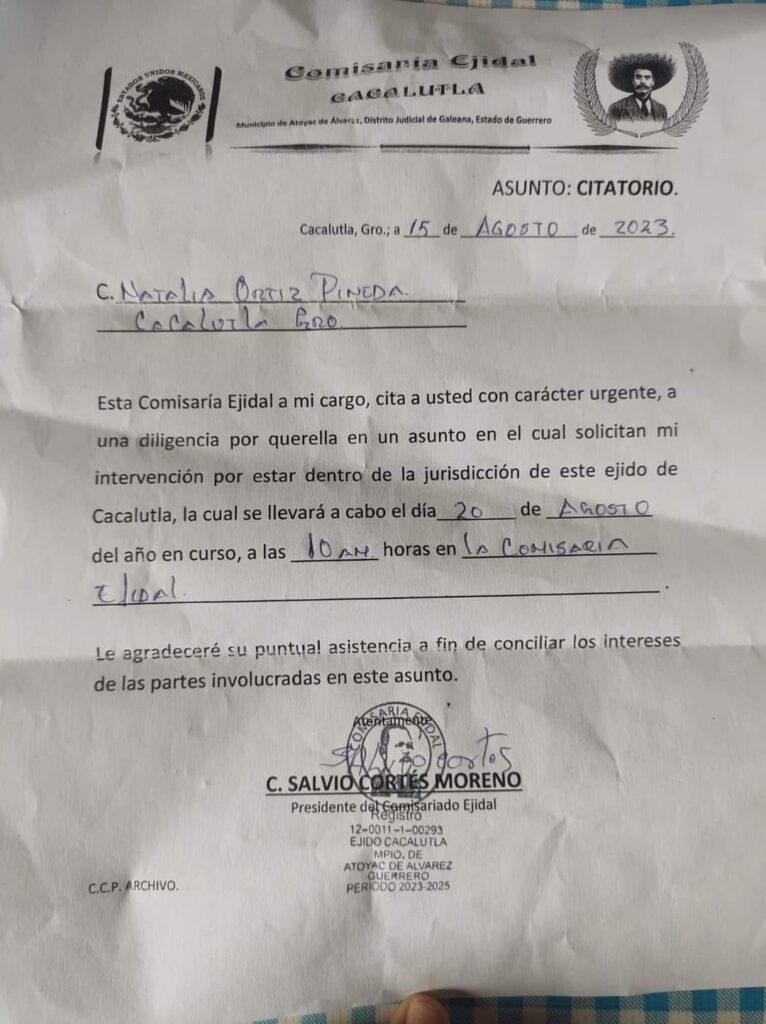 ESTADOS UNIDOS MEXICANOS
Comisaría Ejidal
CACALUTLA
Municipio de Atoyac de Álvarez, Distrito Judicial de Galeana, Estado de Guerrero
ASUNTO: CITATORIO.
Cacalutla, Gro.; a 15 de AGOSTO de 2023.
C. NATALIA ORTIZ PINEDA.
CACALUTLA GRO.
Esta Comisaría Ejidal a mi cargo, cita a usted con carácter urgente, a
una diligencia por querella en un asunto en el cual solicitan mi
intervención por estar dentro de la jurisdicción de este ejido de
Cacalutla, la cual se llevará a cabo el día 20 de AGOSTO
del año en curso, a las 10 AM horas en LA COMISARIA
EJIDAL.
Le agradeceré su puntual asistencia a fin de conciliar los intereses
de las partes involucradas en este asunto.
COMISARIA EJIDAL
Atentamente
Salvio Cortes
C. SALVIO CORTÉS MORENO
Presidente del Comisariado Ejidal
Registro
12-0011-1-00293
EJIDO CACALUTLA
MPIO. DE
ATOYAC DE ALVAREZ
GUERRERO
PERIODO 2023-2025
C.C.P. ARCHIVO.